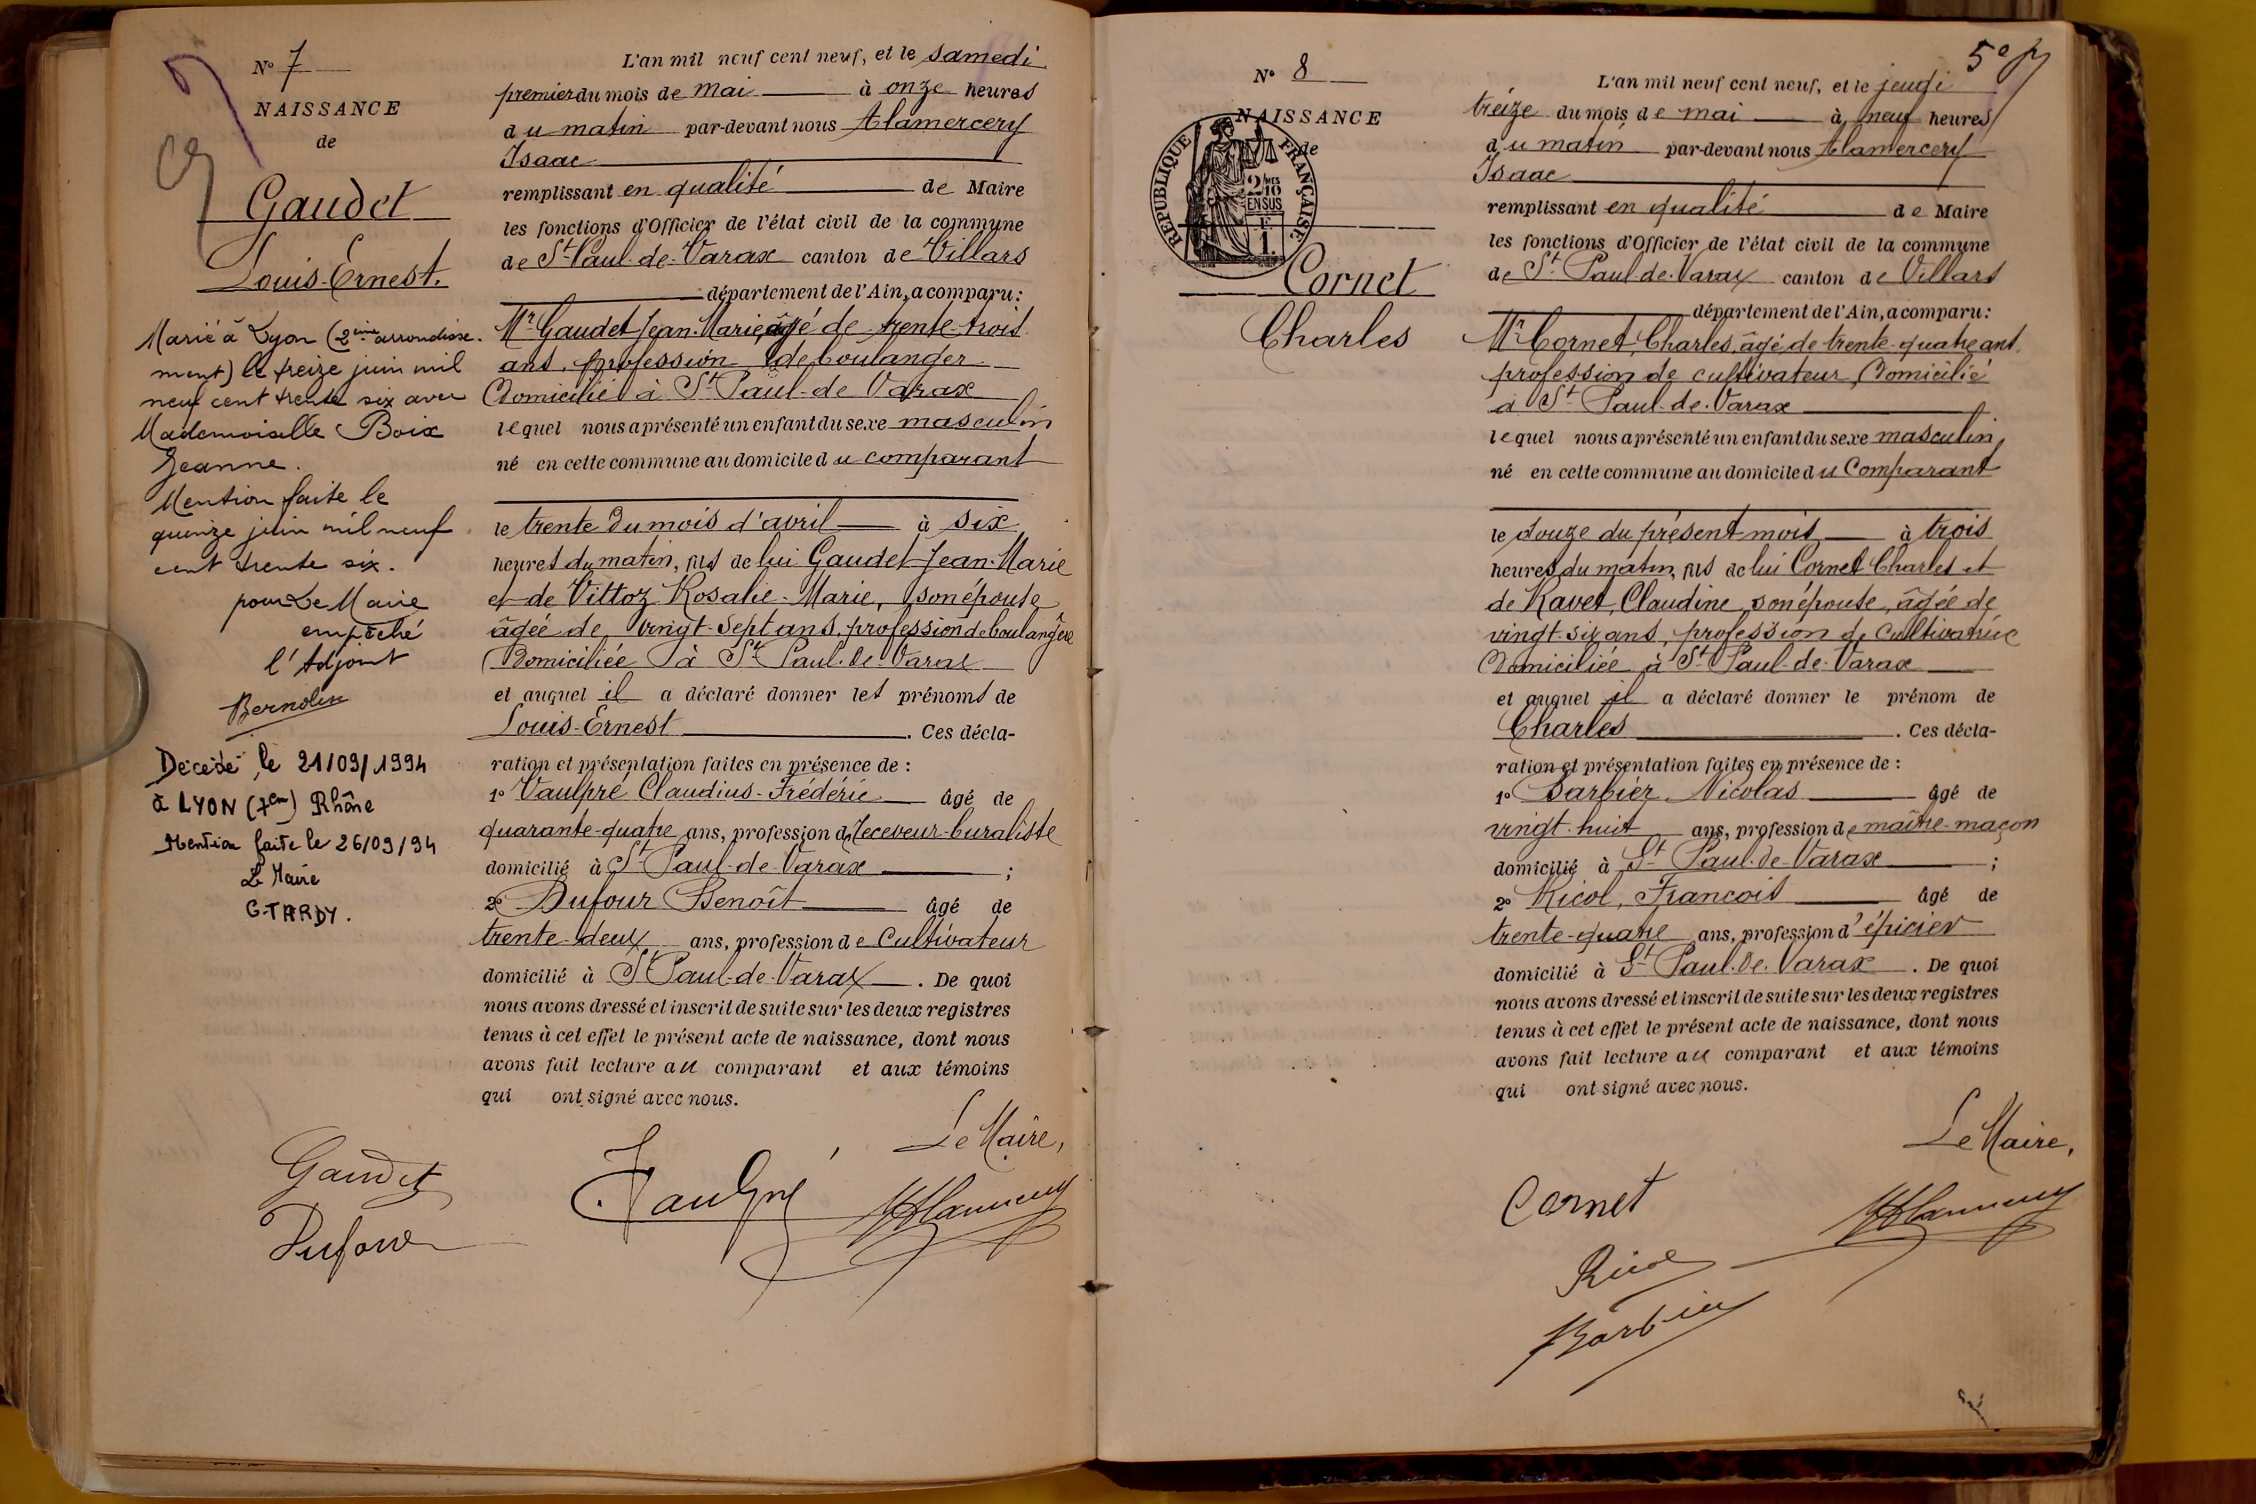 N° 7
NAISSANCE
de
Gaudet
Louis-Ernest.
Marié à Lyon (2ème arrondisse-
ment) le treize juin mil
neuf cent trente six avec
Mademoiselle Boix
Jeanne.
Mention faite le
quinze juin mil neuf
cent trente six.
pour Le Maire
empêché
l'Adjoint
Décédé le 21/09/1994
à LYON (7em) Rhône
Mention faite le 26/09/94
Le Maire
G. TARDY.
L'an mil neuf cent neuf, et le samedi
premier du mois de mai à onze heures
du matin par-devant nous Alamercery
Isaac
remplissant en qualité de Maire
les fonctions d'Officier de l'état civil de la commune
de St Paul-de-Varax canton de Villars
département de l'Ain, a comparu:
Mr Gaudet Jean-Marie, âgé de trente-trois
ans, profession de boulanger
Domicilié à St Paul-de Varax
lequel nous a présenté un enfant du sexe masculin
né en cette commune au domicile du comparant
le trente du mois d'avril à six
heures du matin, fils de lui Gaudet Jean-Marie
et de Vittoz Rosalie-Marie, son épouse
âgée de vingt-sept ans, profession de boulangère
Domiciliée à St Paul-de-Varax
et auquel il a déclaré donner les prénoms de
Louis-Ernest. Ces décla-
ration et présentation faites en présence de :
1° Vaulpré Claudius-Frédéric âgé de
quarante-quatre ans, profession de receveur-buraliste
domicilié à St Paul-de-Varax ;
2° Dufour Benoît âgé de
trente-deux ans, profession de cultivateur
domicilié à St Paul-de-Varax. De quoi
nous avons dressé et inscrit de suite sur les deux registres
tenus à cet effet le présent acte de naissance, dont nous
avons fait lecture au comparant et aux témoins
qui ont signé avec nous.
Le Maire,
Gaudet
Vaulpré
Dufour
N° 8
NAISSANCE
de
RÉPUBLIQUE FRANÇAISE
2/10
EN SUS
F
1.
Cornet
Charles
5e
L'an mil neuf cent neuf, et le jeudi
treize du mois de mai à neuf heures
du matin par-devant nous Alamercery
Isaac
remplissant en qualité de Maire
les fonctions d'Officier de l'état civil de la commune
de St Paul-de-Varax canton de Villars
département de l'Ain, a comparu:
Mr Cornet, Charles, âgé de trente-quatre ans,
profession de cultivateur, Domicilié
à St Paul-de-Varax
lequel nous a présenté un enfant du sexe masculin,
né en cette commune au domicile du Comparant
le douze du présent mois à trois
heures du matin, fils de lui Cornet Charles et
de Ravet, Claudine, son épouse, âgée de
vingt-six ans, profession de cultivatrice
Domiciliée à St Paul-de-Varax
et auquel il a déclaré donner le prénom de
Charles. Ces décla-
ration et présentation faites en présence de :
1° Barbier Nicolas âgé de
vingt-huit ans, profession de maître-maçon
domicilié à St Paul-de-Varax ;
2° Ricol, François âgé de
trente-quatre ans, profession d'épicier
domicilié à St Paul-de-Varax. De quoi
nous avons dressé et inscrit de suite sur les deux registres
tenus à cet effet le présent acte de naissance, dont nous
avons fait lecture au comparant et aux témoins
qui ont signé avec nous.
Le Maire,
Cornet
Ricol
Barbier